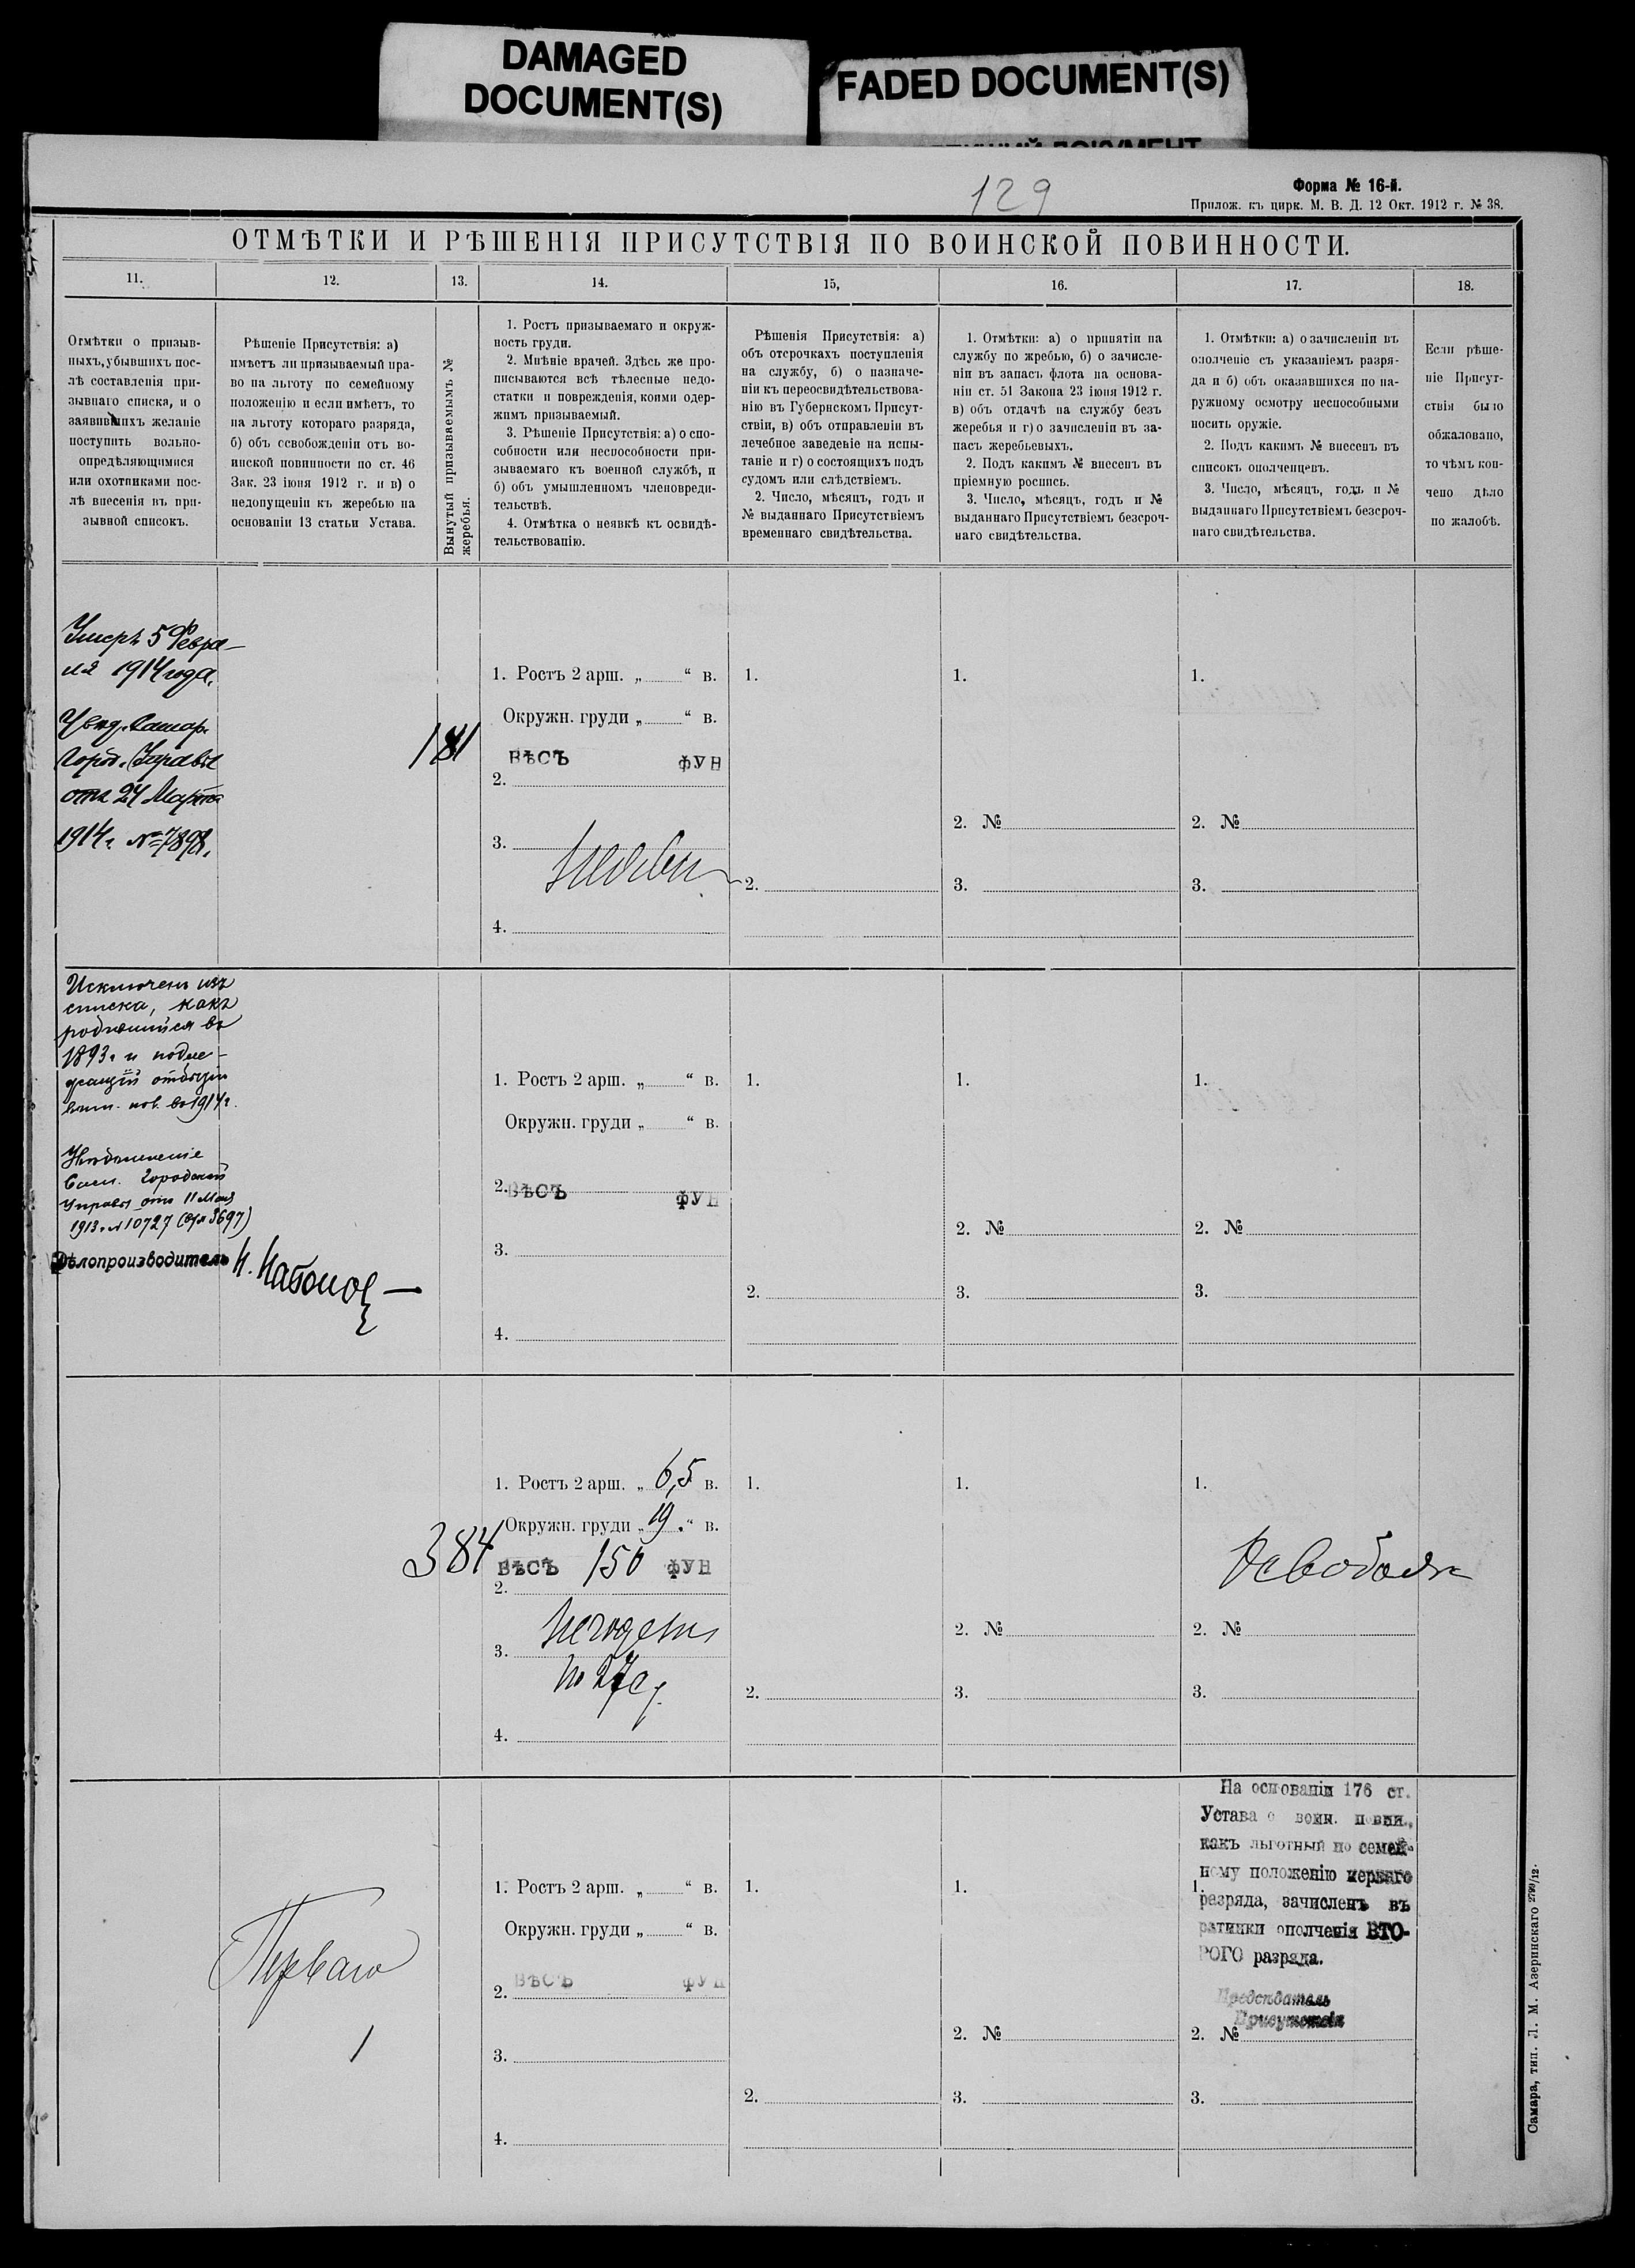 DAMAGED
DOCUMENT(S)
FADED DOCUMENT(S)
129
Форма № 16-й.
Прилож. къ цирк. М. В. Д. 12 Окт. 1912 г. № 38.
ОТМѢТКИ И РѢШЕНІЯ ПРИСУТСТВІЯ ПО ВОИНСКОЙ ПОВИННОСТИ.
11.
12.
13.
14.
15,
16.
17.
18.
Отмѣтки о призыв-
ныхъ, убывшихъ пос-
лѣ составленія при-
зывнаго списка, и о
заявившихъ желаніе
поступить вольно-
опредѣляющимися
или охотниками пос-
лѣ внесенія въ при-
зывной списокъ.
Рѣшеніе Присутствія: а)
имѣетъ ли призываемый пра-
во на льготу по семейному
положенію и если имѣетъ, то
на льготу котораго разряда,
б) объ освобожденіи отъ во-
инской повинности по ст. 46
Зак. 23 іюня 1912 г. и в) о
недопущеніи къ жеребью на
основаніи 13 статьи Устава.
Вынутый призываемымъ №
жеребья.
1. Ростъ призываемаго и окруж-
ность груди.
2. Мнѣніе врачей. Здѣсь же про-
писываются всѣ тѣлесные недо-
статки и поврежденія, коими одер-
жимъ призываемый.
3. Рѣшеніе Присутствія: а) о спо-
собности или неспособности при-
зываемаго къ военной службѣ, и
б) объ умышленномъ членовреди-
тельствѣ.
4. Отмѣтка о неявкѣ къ освидѣ-
тельствованію.
Рѣшенія Присутствія: а)
объ отсрочкахъ поступленія
на службу, б) о назначе-
ніи къ переосвидѣтельствова-
нію въ Губернскомъ Присут-
ствіи, в) объ отправленіи въ
лечебное заведеніе на испы-
таніе и г) о состоящихъ подъ
судомъ или слѣдствіемъ.
2. Число, мѣсяцъ, годъ и
№ выданнаго Присутствіемъ
временнаго свидѣтельства.
1. Отмѣтки: а) о принятіи на
службу по жребью, б) о зачисле-
ніи въ запасъ флота на основа-
ніи ст. 51 Закона 23 іюня 1912 г.
в) объ отдачѣ на службу безъ
жеребья и г) о зачисленіи въ за-
пасъ жеребьевыхъ.
2. Подъ какимъ № внесенъ въ
пріемную роспись.
3. Число, мѣсяцъ, годъ и №
выданнаго Присутствіемъ безсроч-
наго свидѣтельства.
1. Отмѣтки: а) о зачисленіи въ
ополченіе съ указаніемъ разря-
да и б) объ оказавшихся по на-
ружному осмотру неспособными
носить оружіе.
2. Подъ какимъ № внесенъ въ
списокъ ополченцевъ.
3. Число, мѣсяцъ, годъ и №
выданнаго Присутствіемъ безсроч-
наго свидѣтельства.
Если рѣше-
ніе Присут-
ствія было
обжаловано,
то чѣмъ кон-
чено дѣло
по жалобѣ.
Умеръ 5 Февра-
ля 1914 года.
Увед. Самар.
Город. Управы
отъ 24 Марта
1914 г. № 7898.
181
1. Ростъ 2 арш. „ “ в.
Окружн. груди „ “ в.
ВѢСЪ ФУН
2.
3.
4.
1.
2.
1.
2. №
3.
1.
2. №
3.
Исключенъ изъ
списка, какъ
родившійся въ
1893 г. и подле-
жащій отбытію
воин. пов. въ 1914 г.
Увѣдомленіе
Сам. Городской
Управы отъ 11 Мая
1913 г. № 10727 (вх. 3697)
Дѣлопроизводитель
1. Ростъ 2 арш. „ “ в.
Окружн. груди „ “ в.
2. ВѢСЪ ФУН
3.
4.
1.
2.
1.
2. №
3.
1.
2. №
3.
384
1. Ростъ 2 арш. „ 6,5 в.
Окружн. груди „ 19. “ в.
ВѢСЪ 150 ФУН
2.
Негоденъ
3.
4.
1.
2.
1.
2. №
3.
1.
Освобод.
2. №
3.
Перваго
1
1. Ростъ 2 арш. „ “ в.
Окружн. груди „ “ в.
ВѢСЪ ФУН
2.
3.
4.
1.
2.
1.
2. №
3.
На основаніи 176 ст.
Устава о воин. повин.,
какъ льготный по семей-
ному положенію перваго
1.
разряда, зачисленъ въ
ратники ополченія ВТО-
РОГО разряда.
Предсѣдатель
Присутствія
2. №
3.
Самара, тип. Л. М. Азеринскаго 2799/12.